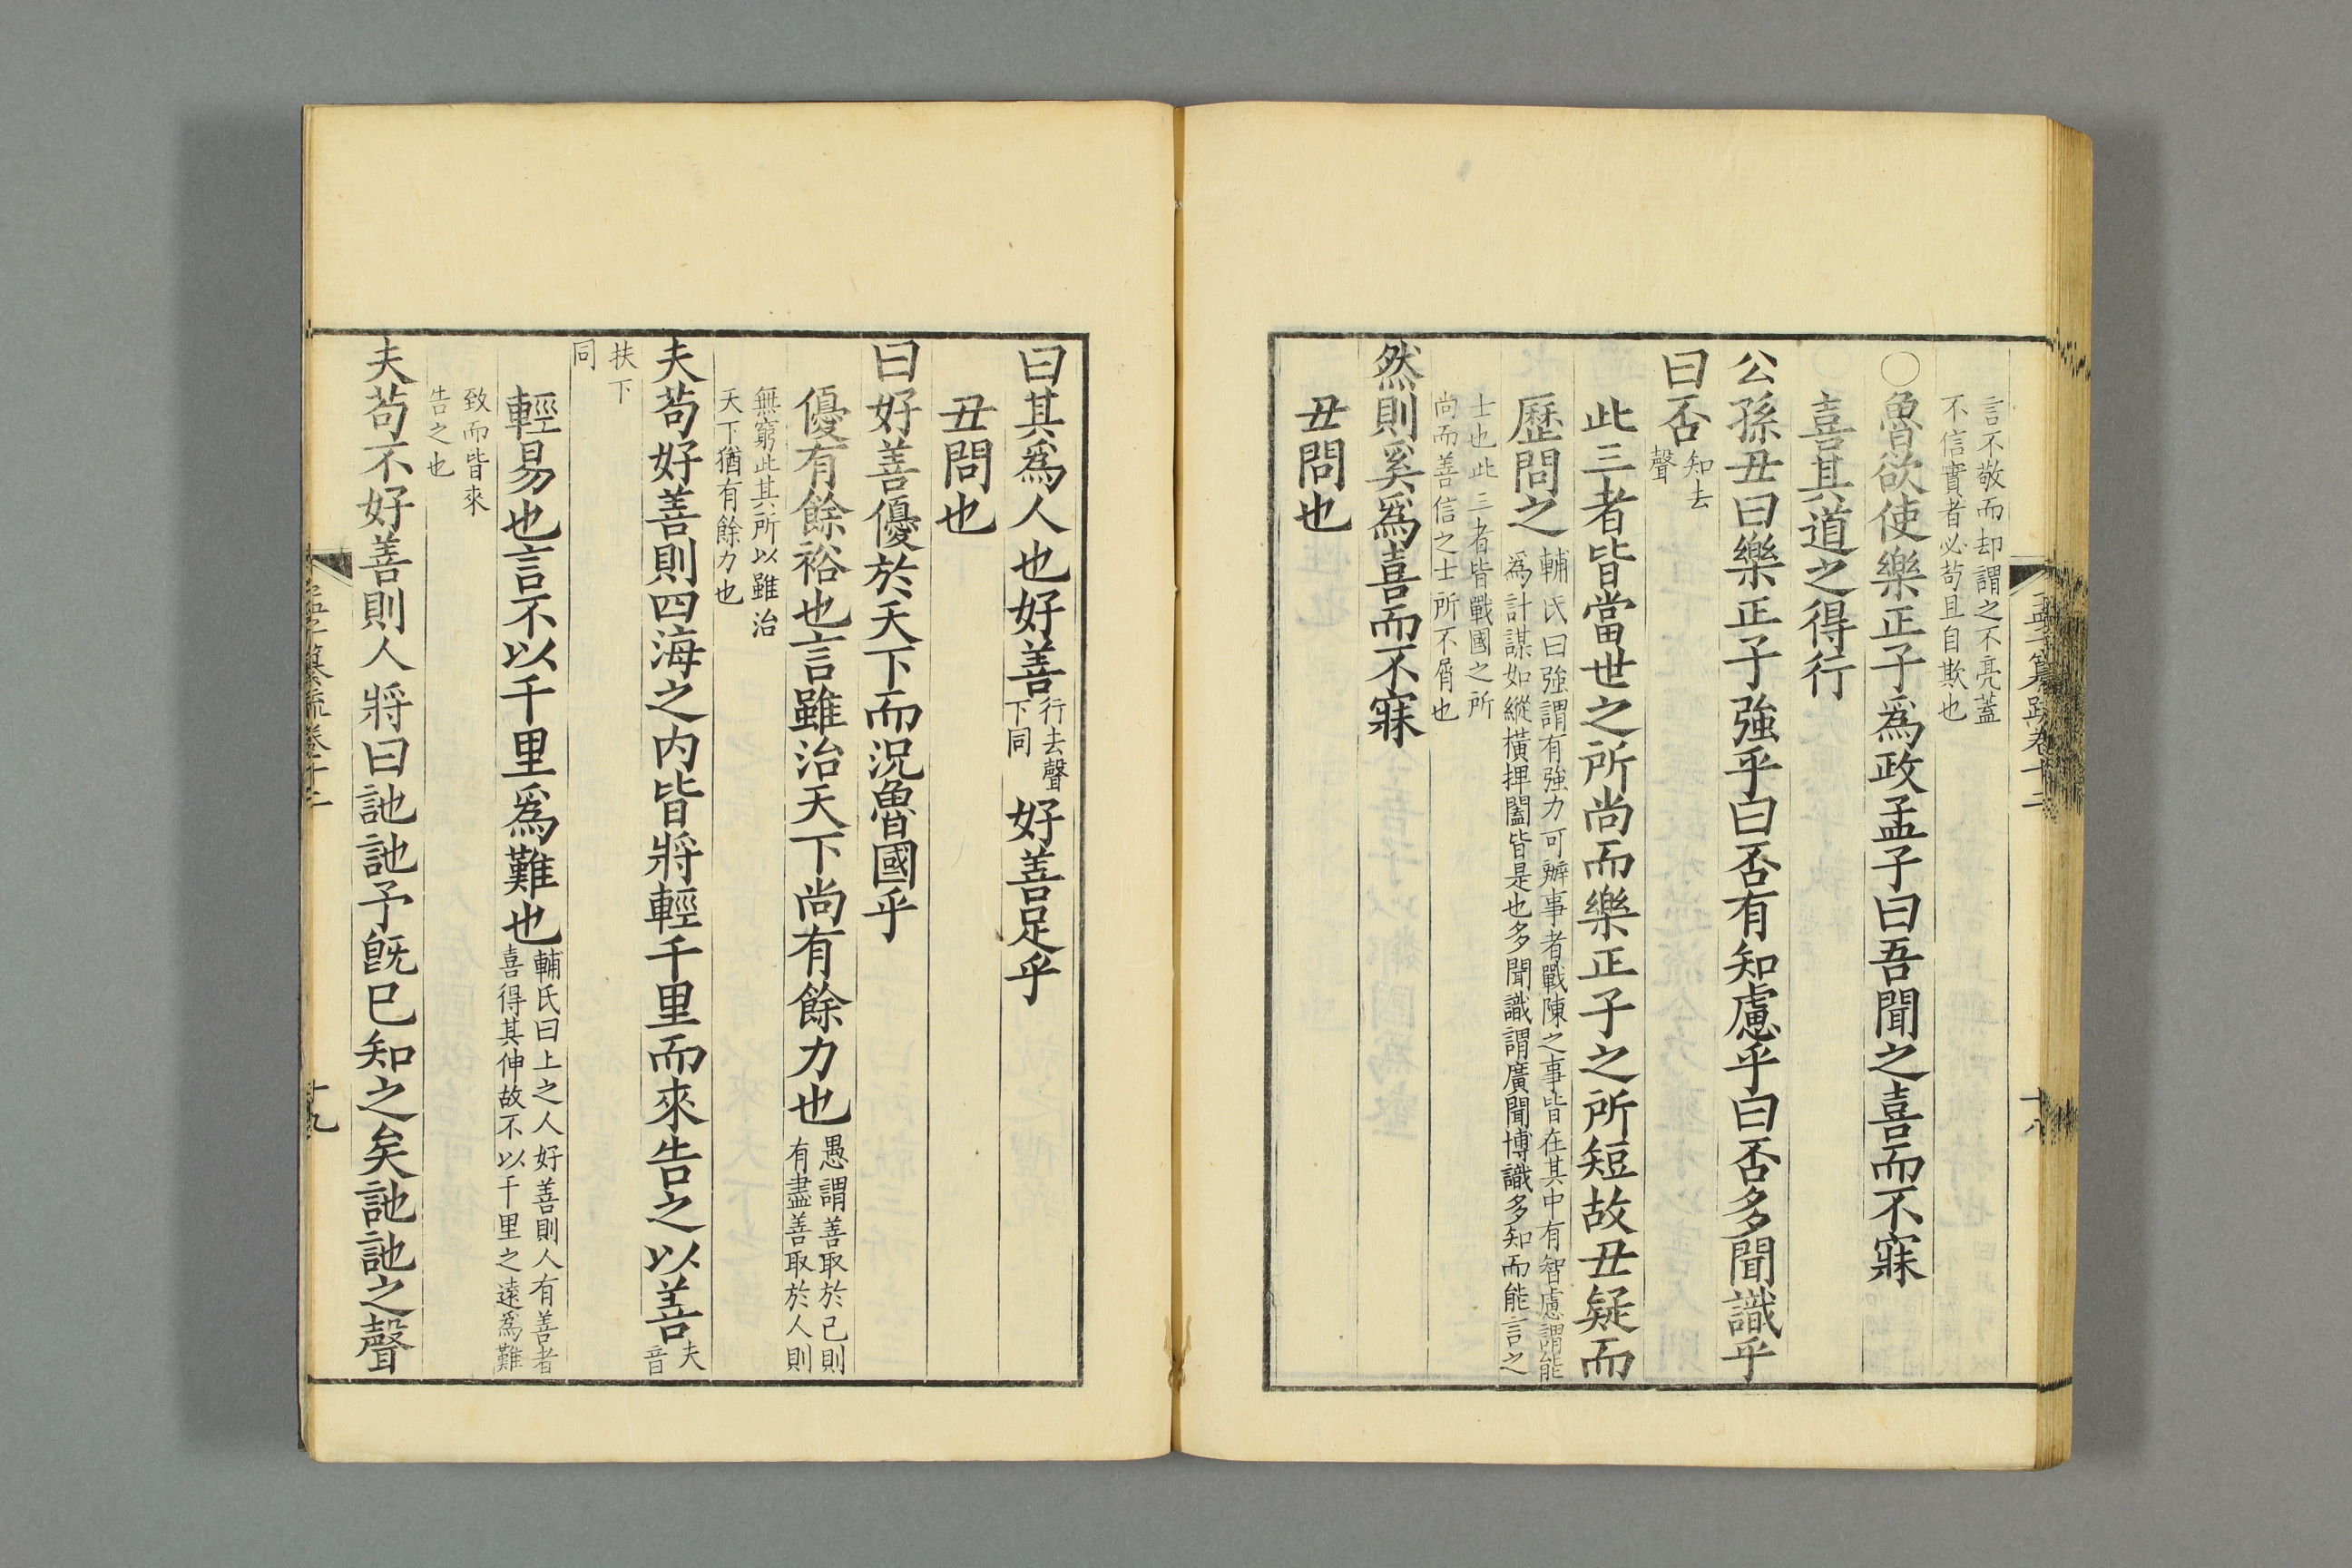 孟子纂疏卷十二
十八
言不敬而却謂之不亮蓋
不信實者必苟且自欺也
○魯欲使樂正子爲政孟子曰吾聞之喜而不寐
喜其道之得行
公孫丑曰樂正子強乎曰否有知慮乎曰否多聞識乎
曰否知去
聲
此三者皆當世之所尚而樂正子之所短故丑疑而
歷問之輔氏曰強謂有強力可辦事者戰陳之事皆在其中有智慮謂能
爲計謀如縱橫捭闔皆是也多聞識謂廣聞博識多知而能言之
士也此三者皆戰國之所
尚而善信之士所不屑也
然則奚爲喜而不寐
丑問也
曰其爲人也好善行去聲
下同好善足乎
丑問也
曰好善優於天下而況魯國乎
優有餘裕也言雖治天下尚有餘力也愚謂善取於己則
有盡善取於人則
無窮此其所以雖治
天下猶有餘力也
夫苟好善則四海之内皆將輕千里而來告之以善夫
音
扶下
同
輕易也言不以千里爲難也輔氏曰上之人好善則人有善者
喜得其伸故不以千里之遠爲難
致而皆來
告之也
夫苟不好善則人將曰訑訑予旣已知之矣訑訑之聲
孟子纂疏卷十二
十九